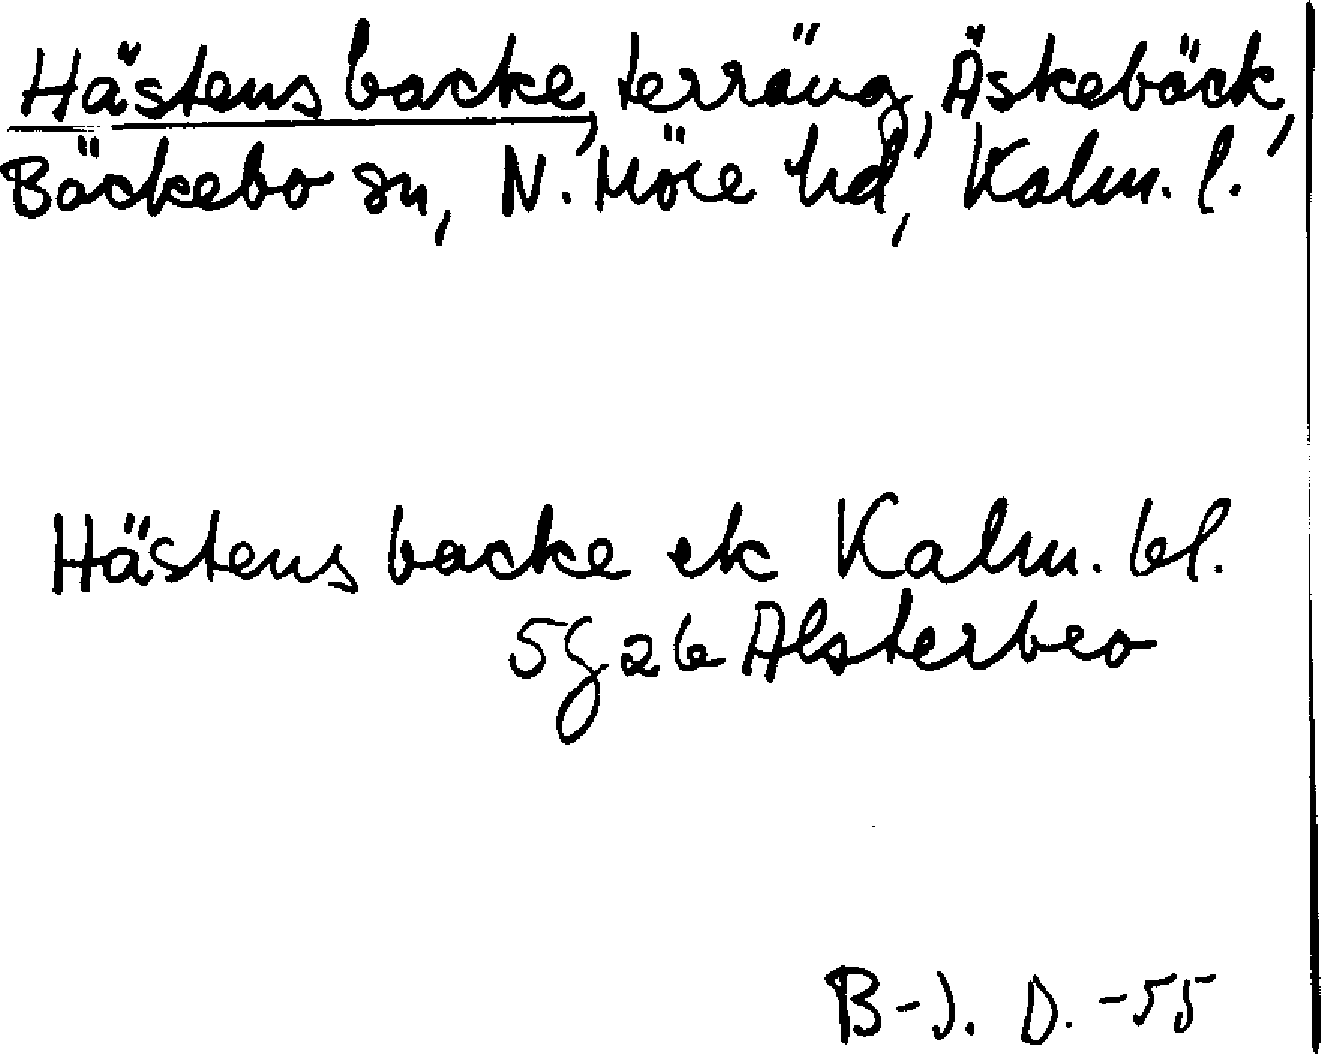 Hästens backe, terräng, Äskebäck,
Bäckebo sn, N. Möre hd, Kalm. l.
Hästens backe ek Kalm. bl.
5g 2b Alsterbro
B-J. D. -55